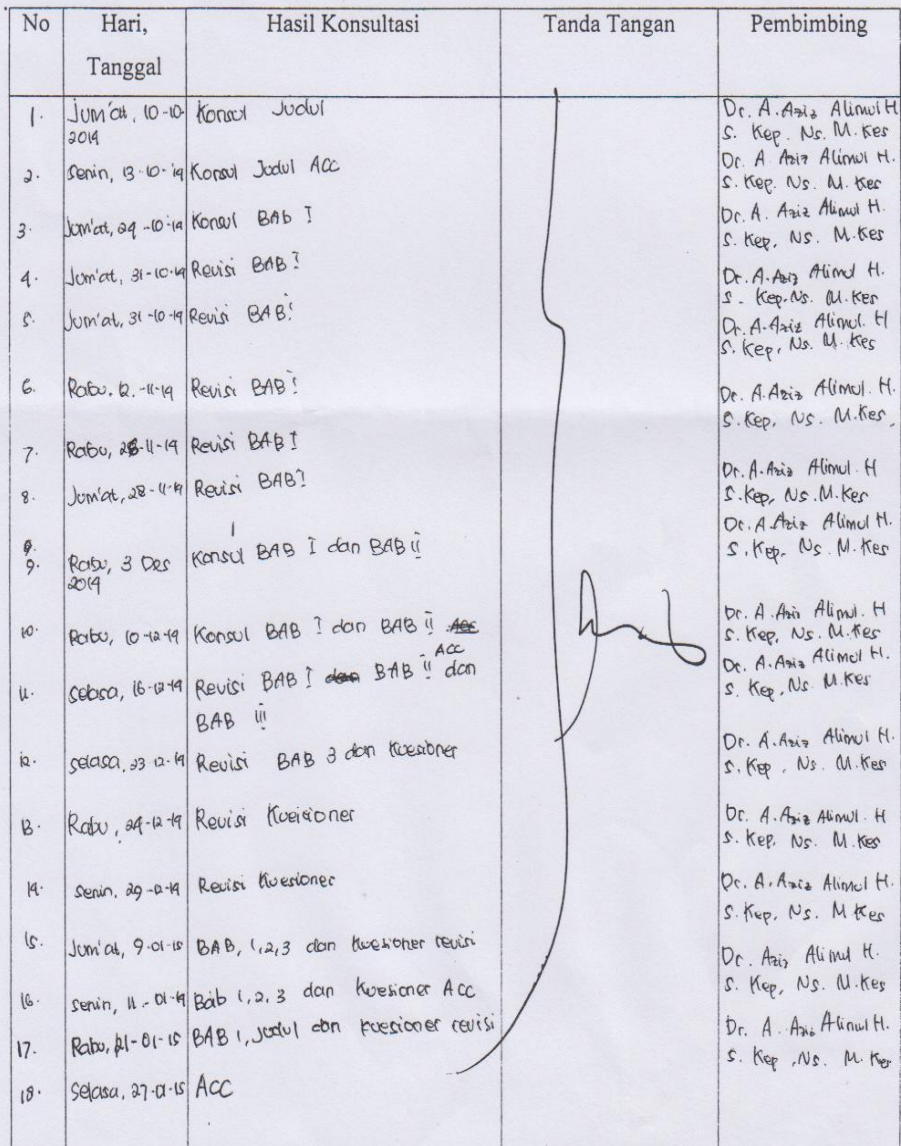 No Hari, Tanggal Hasil Konsultasi Tanda Tangan Pembimbing
1. Jum'at, 10-10-2014 Konsul Judul Dr. A. Aziz Alimul H
S. Kep. Ns. M. Kes
2. Senin, 13-10-'14 Konsul Judul ACC Dr. A Aziz Alimul H.
S. Kep. Ns. M. Kes
3. Jum'at, 24-10-14 Konsul BAB I Dr. A. Aziz Alimul H.
S. Kep, Ns. M.Kes
4. Jum'at, 31-10-14 Revisi BAB I Dr. A. Aziz Alimul H.
S. Kep. Ns. M. Kes
5. Jum'at, 31-10-14 Revisi BAB I Dr. A. Aziz Alimul. H
S. Kep, Ns. M. Kes
6. Rabu. 12.-11-14 Revisi BAB I Dr. A. Aziz Alimul. H.
S. Kep, Ns. M.Kes,
7. Rabu, 26-11-14 Revisi BAB I
8. Jum'at, 28-11-14 Revisi BAB I Dr. A. Aziz Alimul. H
S. Kep, Ns. M. Kes
9. Rabu, 3 Des 2014 Konsul BAB I dan BAB II Dr. A. Aziz Alimul H.
S. Kep. Ns. M. Kes
10. Rabu, 10-12-14 Konsul BAB I dan BAB II Acc Dr. A. Aziz Alimul. H
S. Kep, Ns. M. Kes
11. Selasa, 16-12-14 Revisi BAB I dan BAB II ACC dan Dr. A. Aziz Alimul H.
BAB III S. Kep, Ns. M. Kes
12. Selasa, 23-12-14 Revisi BAB 3 dan Kuesioner Dr. A. Aziz Alimul H.
S. Kep, Ns. M. Kes
13. Rabu, 24-12-14 Revisi Kueisioner Dr. A. Aziz Alimul. H
S. Kep, Ns. M. Kes
14. Senin, 29-12-14 Revisi Kuesioner Dr. A. Aziz Alimul H.
S. Kep, Ns. M Kes
15. Jum'at, 9-01-15 BAB, 1,2,3 dan Kuesioner revisi Dr. Aziz Alimul H.
S. Kep, Ns. M. Kes
16. Senin, 11-01-14 Bab 1,2,3 dan Kuesioner Acc
17. Rabu, 21-01-15 BAB 1, Judul dan Kuesioner revisi Dr. A. Aziz Alimul H.
S. Kep, Ns. M. Kes
18. Selasa, 27-01-15 ACC